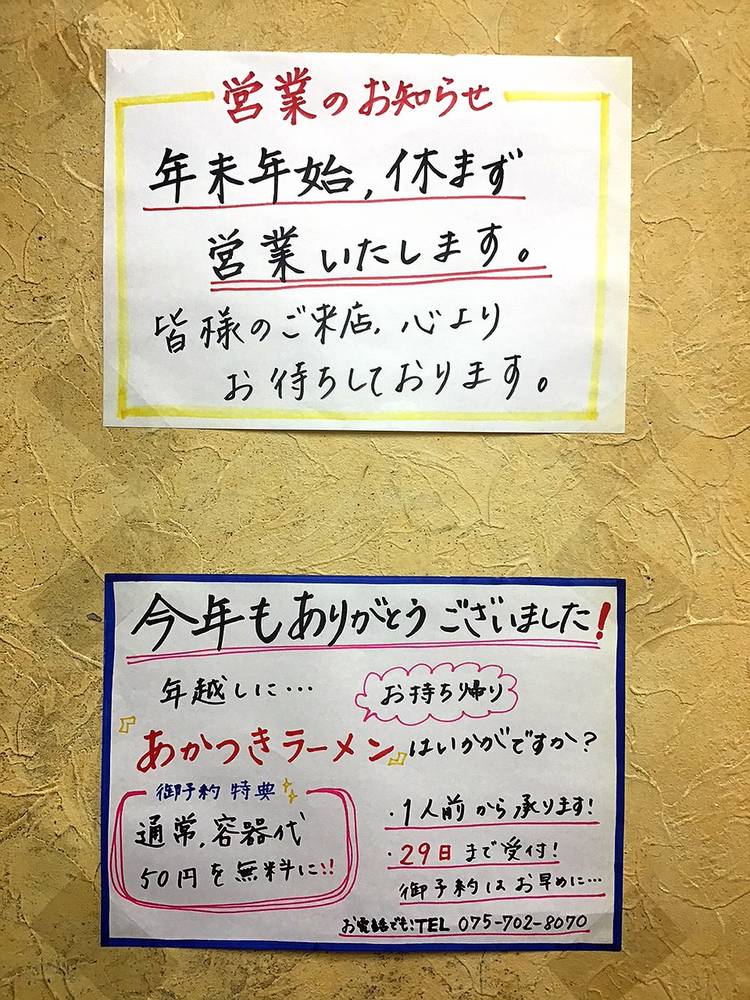 営業のお知らせ
年末年始,休まず
営業いたします。
皆様のご来店,心より
お待ちしております。
今年もありがとうございました!
年越しに…
お持ち帰り
『あかつきラーメン』はいかがですか?
御予約特典
通常,容器代
50円を無料に!!
・1人前から承ります!
・29日まで受付!
御予約はお早めに…
お電話でも:TEL 075-702-8070